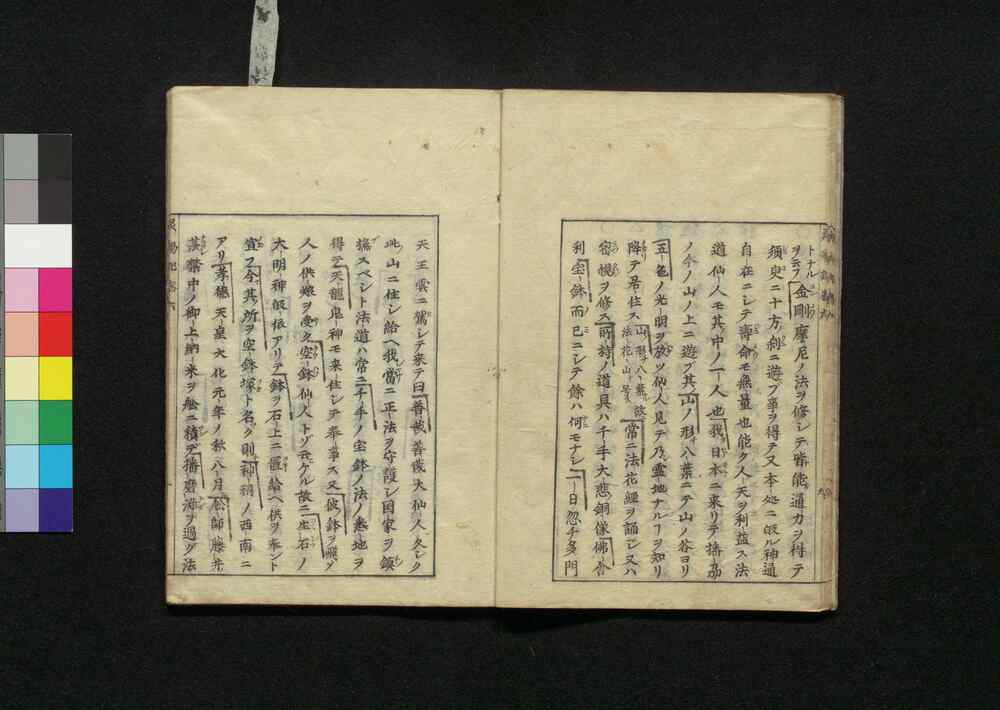 トナル
ヲ云フ金剛摩尼ノ法ヲ修シテ皆能通力ヲ得テ
須臾ニ十方刹ニ遊フ事ヲ得テ又本処ニ皈ル神通
自在ニシテ壽命モ無量也能ク人天ヲ利益ス法
道仙人モ其中ノ一人也我日本ニ来リテ播
ノ今ノ山ノ上ニ遊ブ其山ノ形八葉ニテ山ノ谷ヨリ
五色ノ光明ヲ放ツ仙人見テ乃霊地ナルヿヲ知リ
降テ居住ス山形八葉故法花山ト号ス常ニ法花經ヲ誦シ又ハ
密観ヲ修ス所持ノ道具ハ千手大悲銅像佛舎
利宝鉢而已ニシテ餘ハ何モナシ一日忽チ多門
天王雲ニ駕シテ来テ曰善哉善哉大仙人久シク
此山ニ住シ給ヘ我當ニ正法ヲ守護シ国家ヲ鎮
撫スベシト法道ハ常ニ千手ノ宝鉢ノ法ノ悉地ヲ
得テ天龍鬼神モ来住シテ奉事ス又彼鉢ヲ飛ゾ
人ノ供ヲ受ク空鉢仙人トゾ云ケル故ニ生石ノ
大明神皈依アリテ鉢ヲ石上ニ置給ヘ供ヲ奉ント
宣フ今其所ヲ空鉢塚ト名ク則神祠ノ西南ニ
アリ孝徳天皇大化元年ノ秋八月舩師藤井
禁中ノ御上納米ヲ舩ニ積テ播磨灘ヲ過グ法